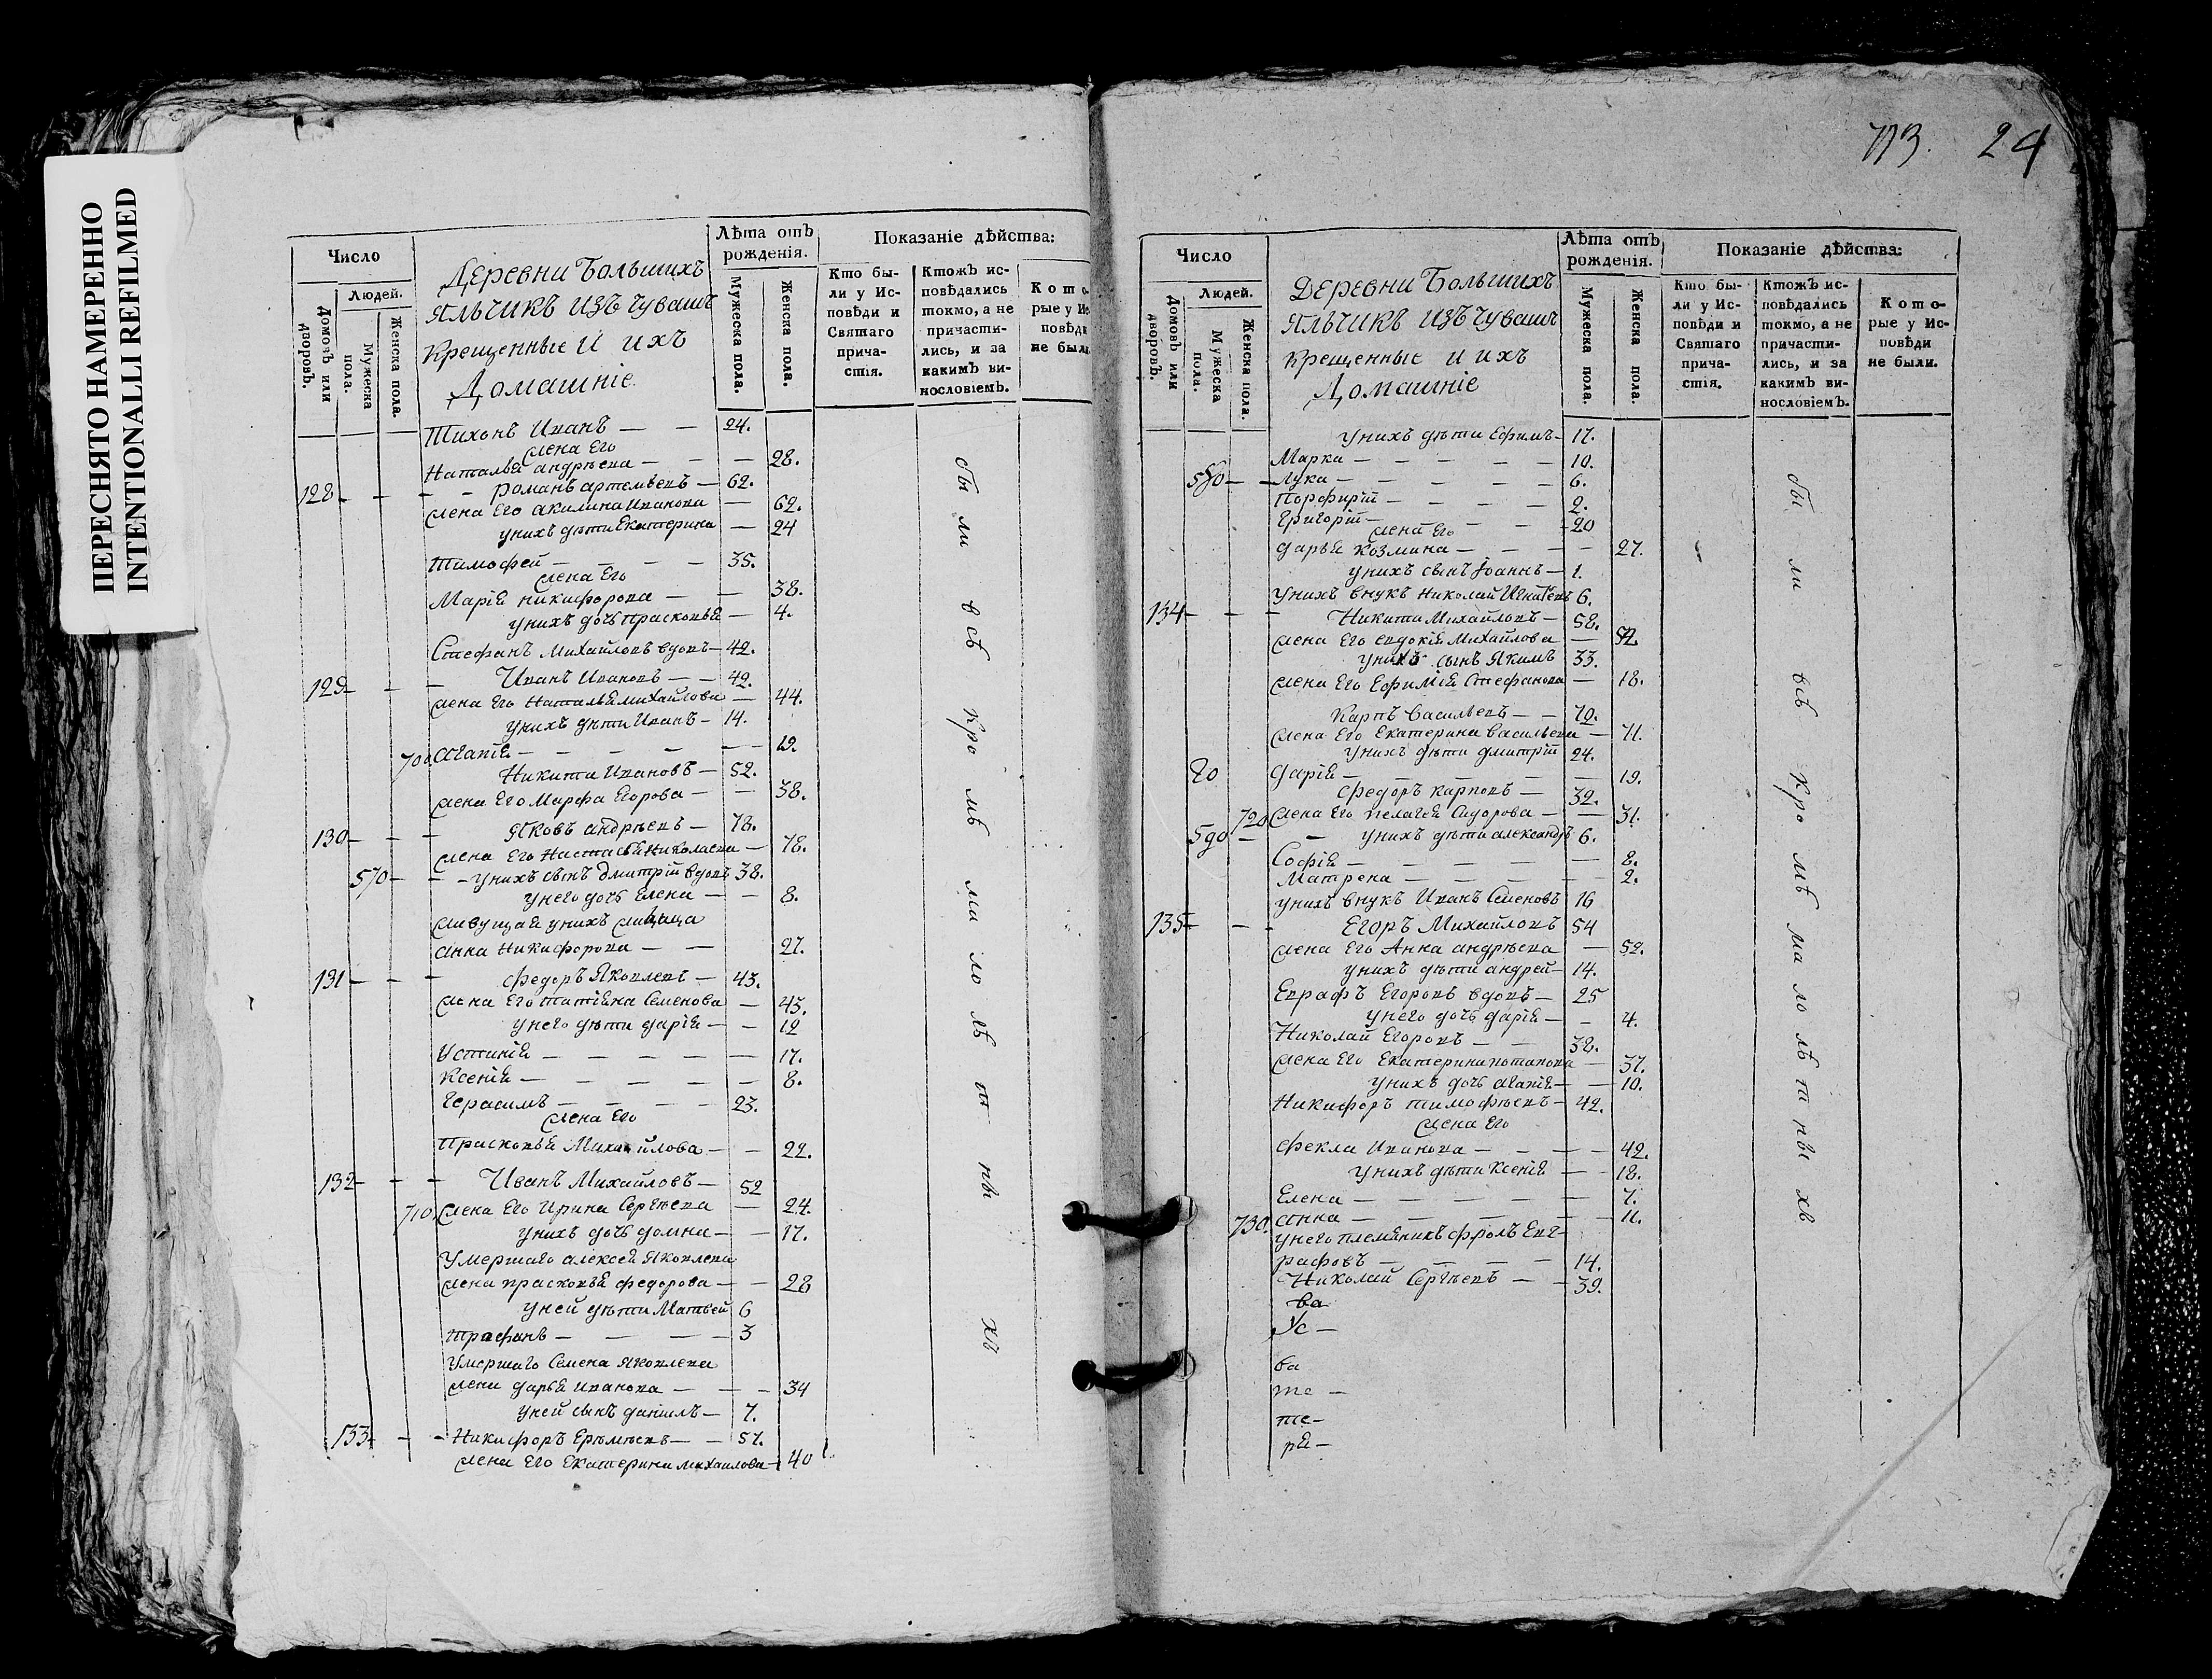 ПЕРЕСНЯТО НАМЕРЕННО
INTENTIONALLI REFILMED
Число
Людей.
Домовъ или дворовъ.
Мужеска пола.
Женска пола.
Деревни Большихъ
Яльчикъ изъ чувашъ
крещенные и ихъ
Домашніе
Лѣта отъ рожденія.
Мужеска пола.
Женска пола.
Показаніе дѣйства:
Кто были у Исповѣди и Святаго причастія.
Ктожъ исповѣдались токмо, а не причастились, и за какимъ винословіемъ.
Которые у Исповѣди не были
Тихонъ Иванъ — — 24.
жена Его
Наталья андрѣева — — — 28.
128 — — — романъ артемьевъ — 62.
жена Его акилина Иванова — 62.
унихъ дѣти Екатерина — 24
Тимофей — — — — 35.
жена Его
Марія никифорова — — 38.
унихъ дочь прасковья — 4.
Стефанъ Михайловъ вдовъ — 42.
129 — — — Иванъ Ивановъ — — 42.
жена Его Наталья михайлова — 44.
унихъ дѣти Иванъ — 14.
700 Агапія — — — — — — 19.
Никита Ивановъ — 52.
жена Его Марфа Егорова — — 38.
130 — — — Яковъ андрѣевъ — 78.
жена Его Настасья Николаева — 78.
570 — — — унихъ сынъ Дмитрій вдовъ 38.
унего дочь Елена — — 8.
живущая унихъ
анна Никифорова — — 27.
131 — — — Федоръ Яковлевъ — 43.
жена Его татіяна Семенова — 43.
унего дѣти дарія — — 12
Устинія — — — — — 17.
Ксенія — — — — — 8.
Герасимъ — — — — 23.
жена Его
Прасковья Михайлова — — 22.
132 — — — Иванъ Михайловъ — 52
710 жена Его Ирина Сергѣева — 24.
унихъ дочь домна — — 17.
Умершаго алексея Яковлева
жена прасковья федорова — — 28
уней дѣти Матвей 6
трофимъ — — — — 3
Умершаго Семена Яковлева
жена дарья иванова — — — 34
уней сынъ данилъ — 7.
133 — — — Никифоръ Ерѣмѣевъ — — 57.
жена Его Екатерина михайлова — 40
бы ли всѣ кро мѣ ма ло лѣ т ны хъ
713. 24
Число
Людей.
Домовъ или дворовъ.
Мужеска пола.
Женска пола.
Деревни Большихъ
Яльчикъ изъ чувашъ
крещенные и ихъ
Домашніе
Лѣта отъ рожденія.
Мужеска пола.
Женска пола.
Показаніе дѣйства:
Кто были у Исповѣди и Святаго причастія.
Ктожъ исповѣдались токмо, а не причастились, и за какимъ винословіемъ.
Которые у Исповѣди не были.
унихъ дѣти Ефимъ — 17.
Марка — — — — — 10.
580 — — Лука — — — — — 6.
Порфирій — — — — 2.
Григорій — — — — 20
жена Его
дарья козмина — — — — 27.
унихъ сынъ Іоаннъ — 1.
унихъ внукъ николай Игнатьевъ 6.
134 — — — Никита Михайловъ — 58.
жена Его евдокія Михайлова — 52.
унихъ сынъ Якимъ 33.
жена Его Ефимія Стефанова — 18.
Карпъ Васильевъ — — 70.
жена Его Екатерина васильева — 71.
унихъ дѣти дмитрій 24.
80 дарія — — — — — 19.
Федоръ карповъ — 32.
720 жена Его пелагея Сидорова — — 31.
590 — — унихъ дѣти александръ 6.
Софія — — — — — 8.
Матрена — — — — — 2.
унихъ внукъ Иванъ Семеновъ 16
135 — — — Егоръ Михайловъ 54
жена Его Анна андрѣева — 52.
унихъ дѣти андрей — 14.
Евграфъ Егоровъ вдовъ — 25
унего дочь дарія — — 4.
Николай Егоровъ — — 38.
жена Его Екатерина потапова — 37.
унихъ дочь агапія — — 10.
Никифоръ тимофѣевъ — 42.
жена Его
фекла Иванова — — — — 42.
унихъ дѣти Ксенія — — 18.
Елена — — — — — 7.
730. анна — — — — — 11.
унего племяникъ фролъ Евг-
рафовъ — — — — 14.
Николай Сергѣевъ — — 39.
ва
Ус —
ва
те —
те —
ря —
бы ли всѣ кро мѣ ма ло лѣ т ны хъ